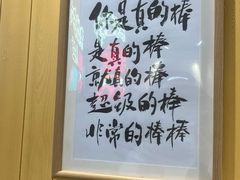 你是真的棒
是真的棒
真的棒
超级的棒
非常的棒棒